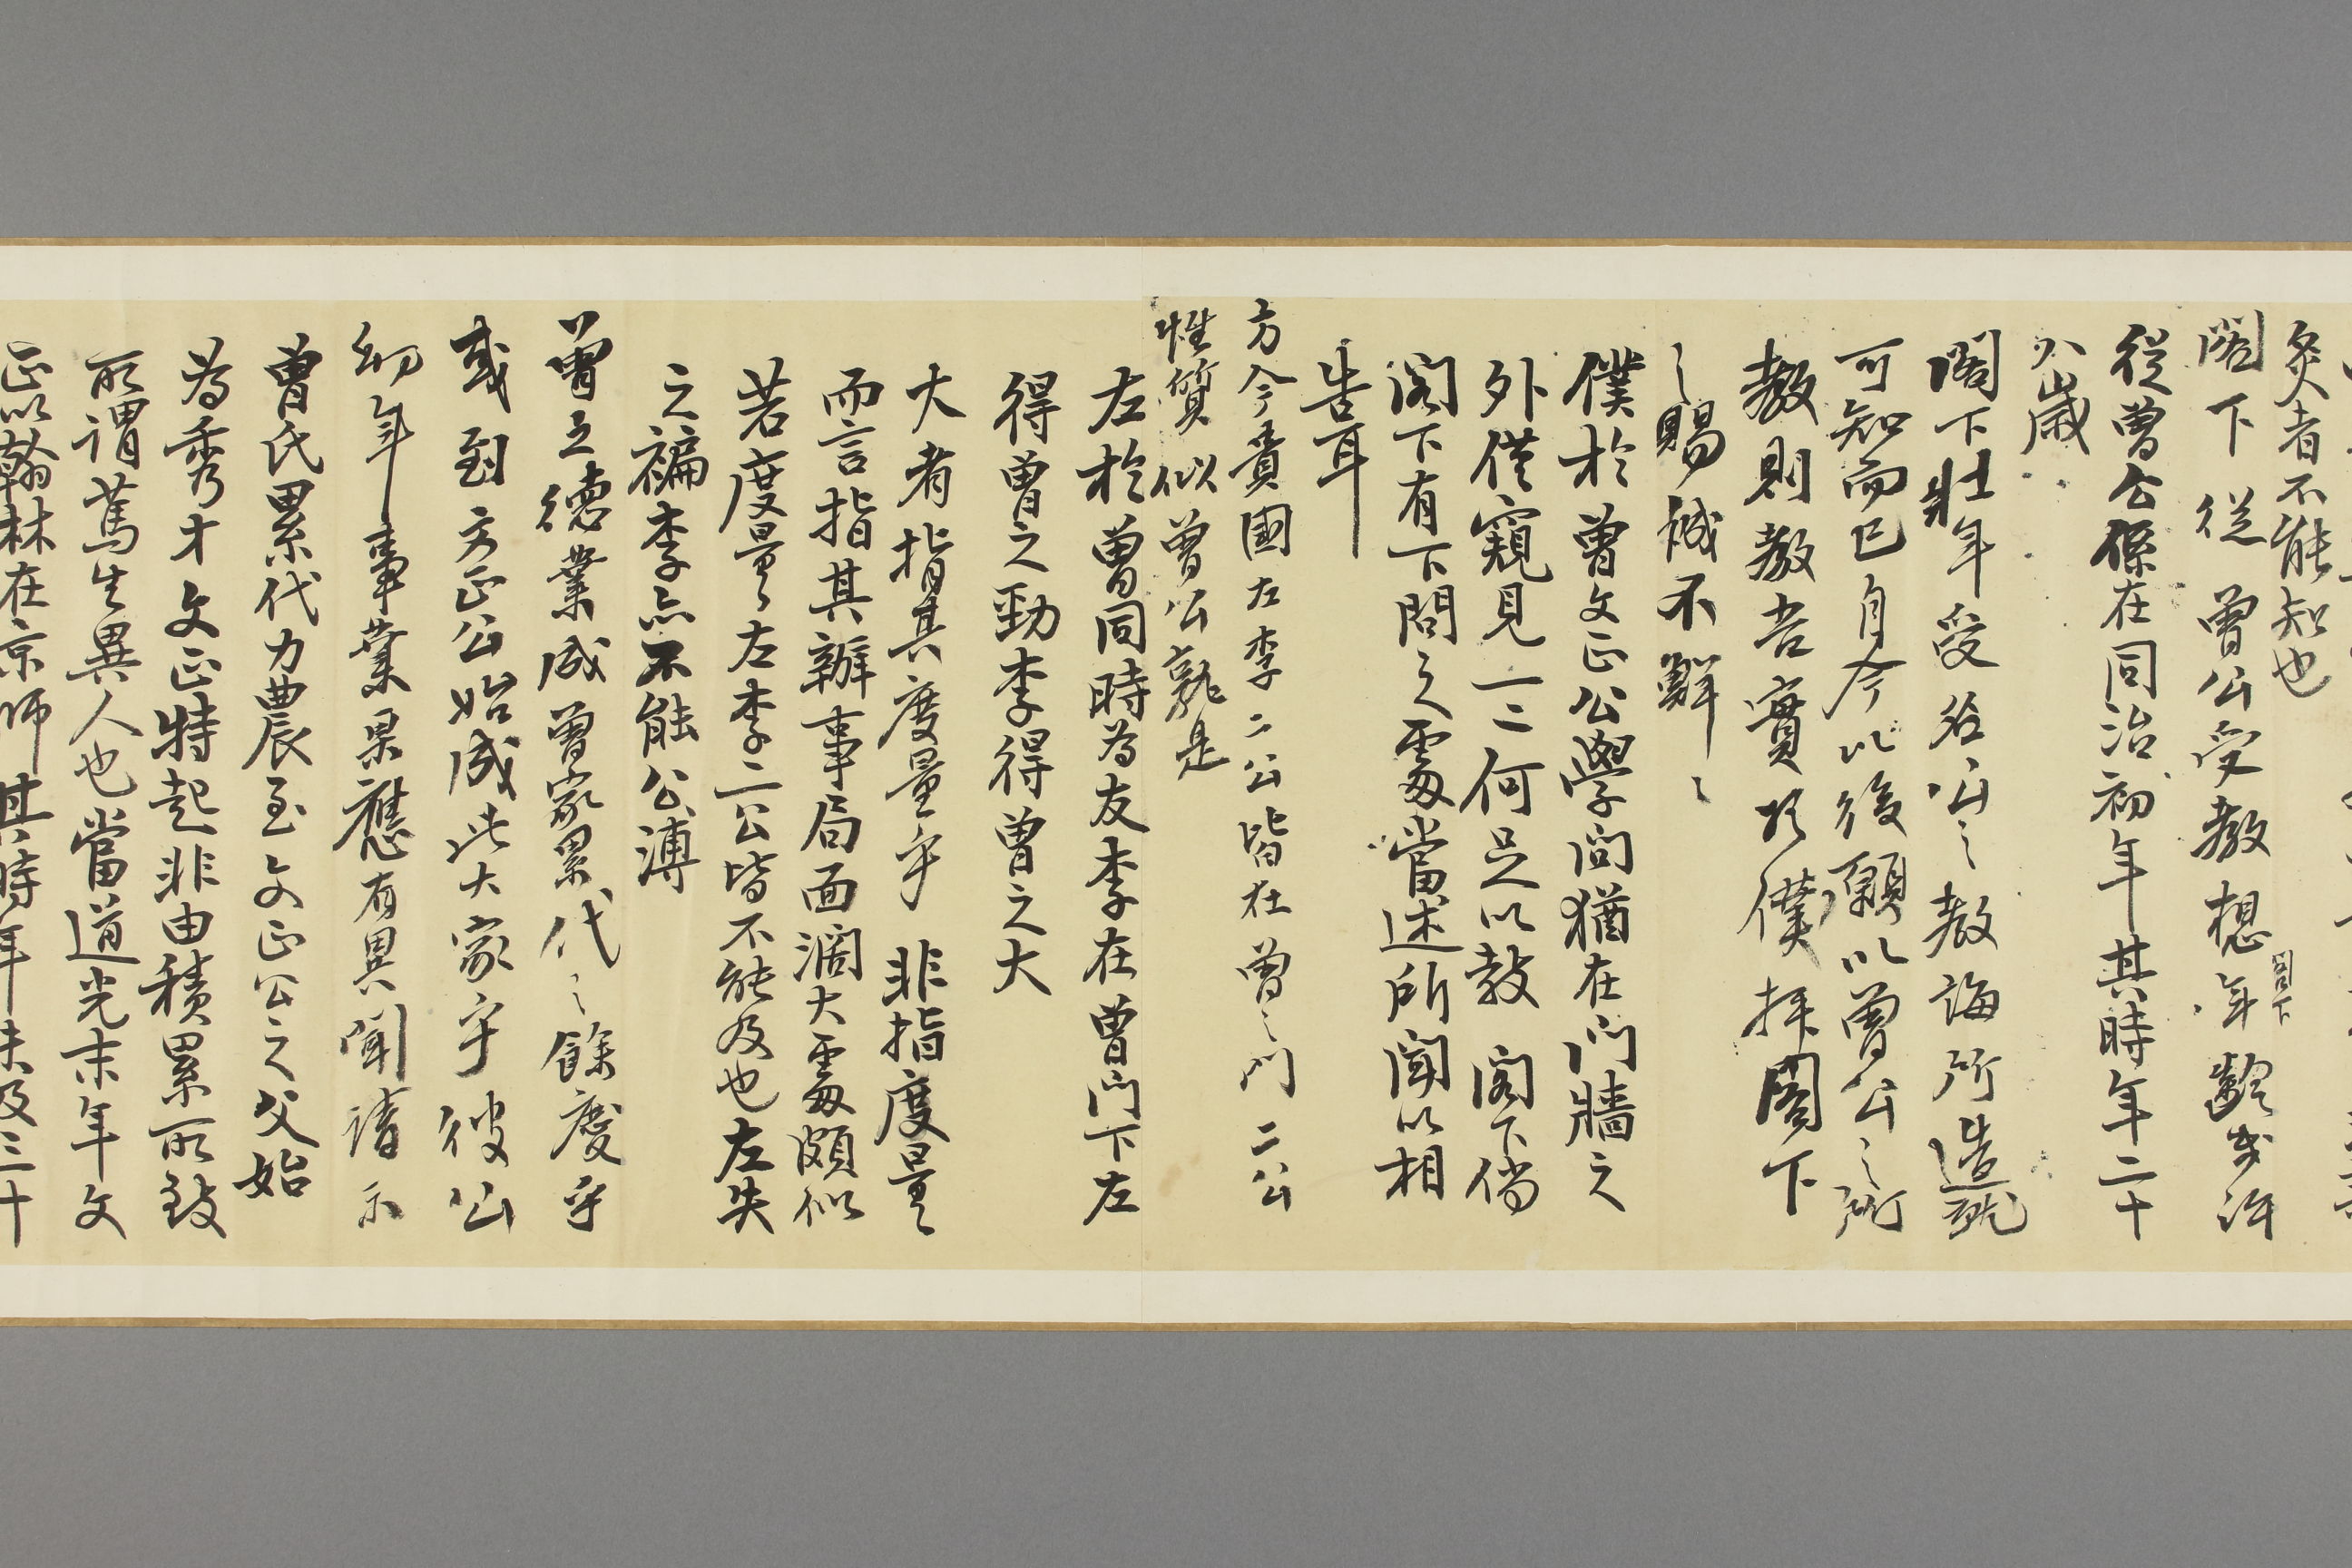 炙者不能知也
閣下從 曾公受教想年齡閣下幾許
從曾公係在同治初年其時年二十
八歲
閣下壯年受名公之教誨所造就
可知而已自今以後願以曾公之所
教則教吾實所僕拜閣下
之賜誠不鮮々
僕於曾文正公學問猶在門牆之
外僅窺見一二何足以教 閣下倘
閣下有下問之處當述所聞以相
告耳
方今貴國左李二公皆在曾之門二公
性質似曾公孰是
左於曾同時為友李在曾門下左
得曾之勁李得曾之大
大者指其度量乎 非指度量
而言指其辦事局面濶大處頗似
若度量左李二公皆不能及也左失
之褊李亦不能公溥
曾之德業成曾家累代之餘慶乎
或到文正公始成此大家乎彼公
幼年事業果應有異聞請示
曾氏累代力農至文正公之父始
為秀才文正特起非由積累所致
所謂篤生異人也當道光末年文
正以翰林在京師其時年未及三十